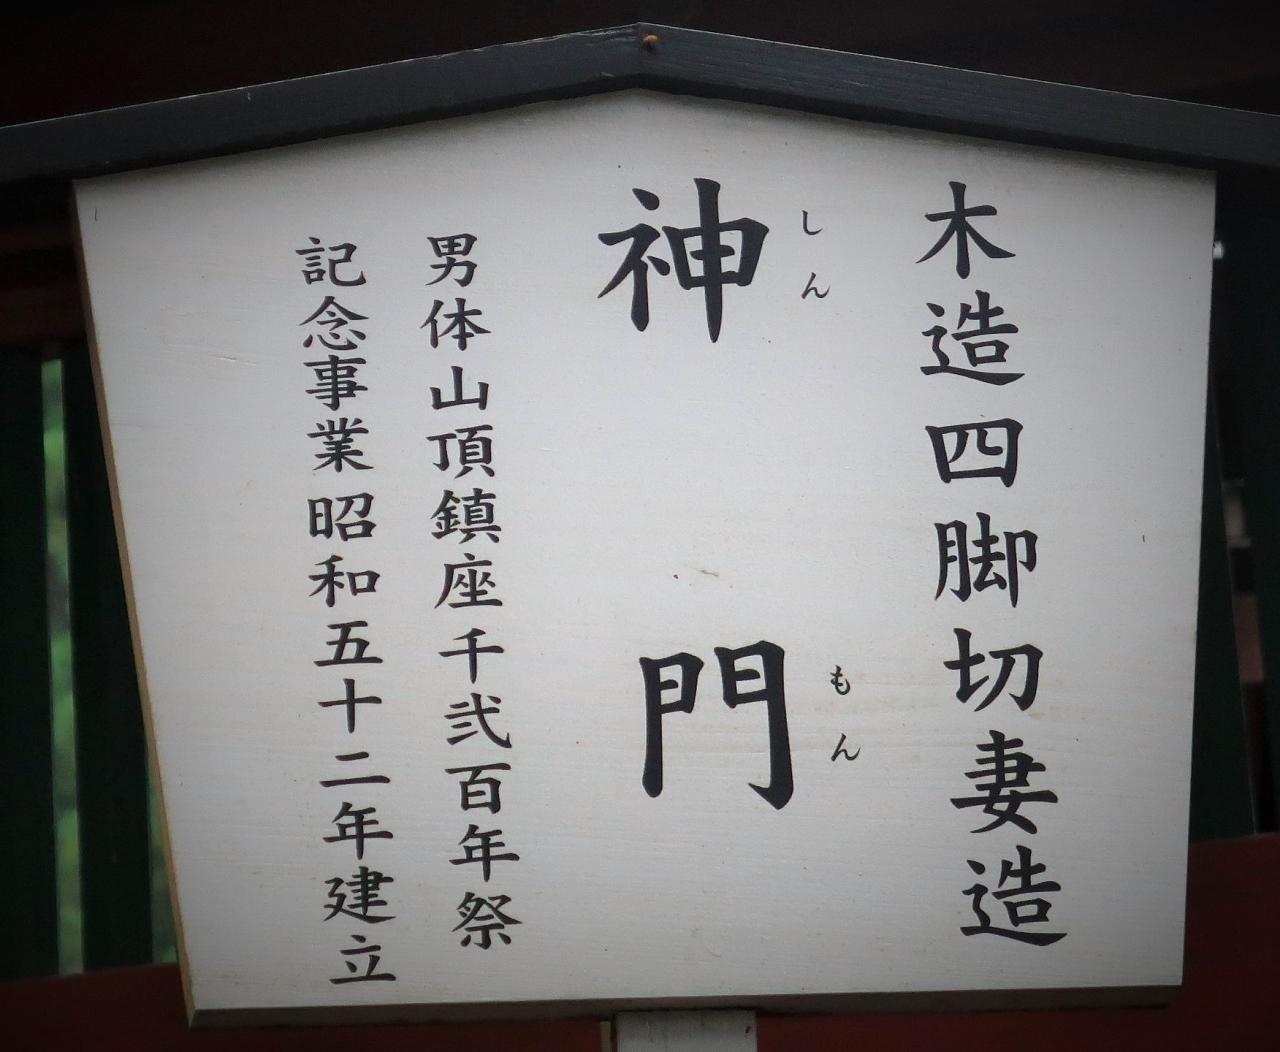 木造四脚切妻造
しんもん
神門
男体山頂鎮座千弐百年祭
記念事業昭和五十二年建立